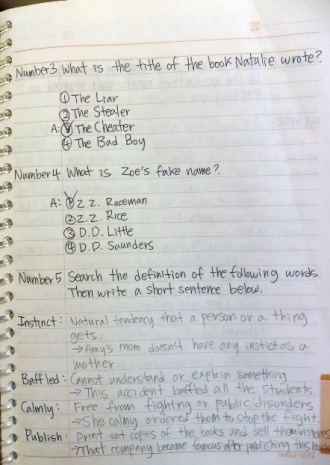 Number3 What is the title of the book Natalie wrote?
① The Liar
② The Stealer
A: ③ The Cheater
④ The Bad Boy
Number4 What is Zoe's fake name?
A: ① Z.Z. Raceman
② Z.Z. Rice
③ D.D. Little
④ D.D. Saunders
Number5 Search the definition of the following words.
Then write a short sentence below.
Instinct: Natural tendency that a person or a thing
gets.
→ Amy's mom doesn't have any instict as a
mother.
Baffled: Cannot understand or explain something
→ This accident baffled all the students.
Calmly: Free from fighting or public disorders
→ She calmy ordered them to stop the fight.
Publish: Print out copies of the books and sell them in stores
→ That company became famous after publishing this book